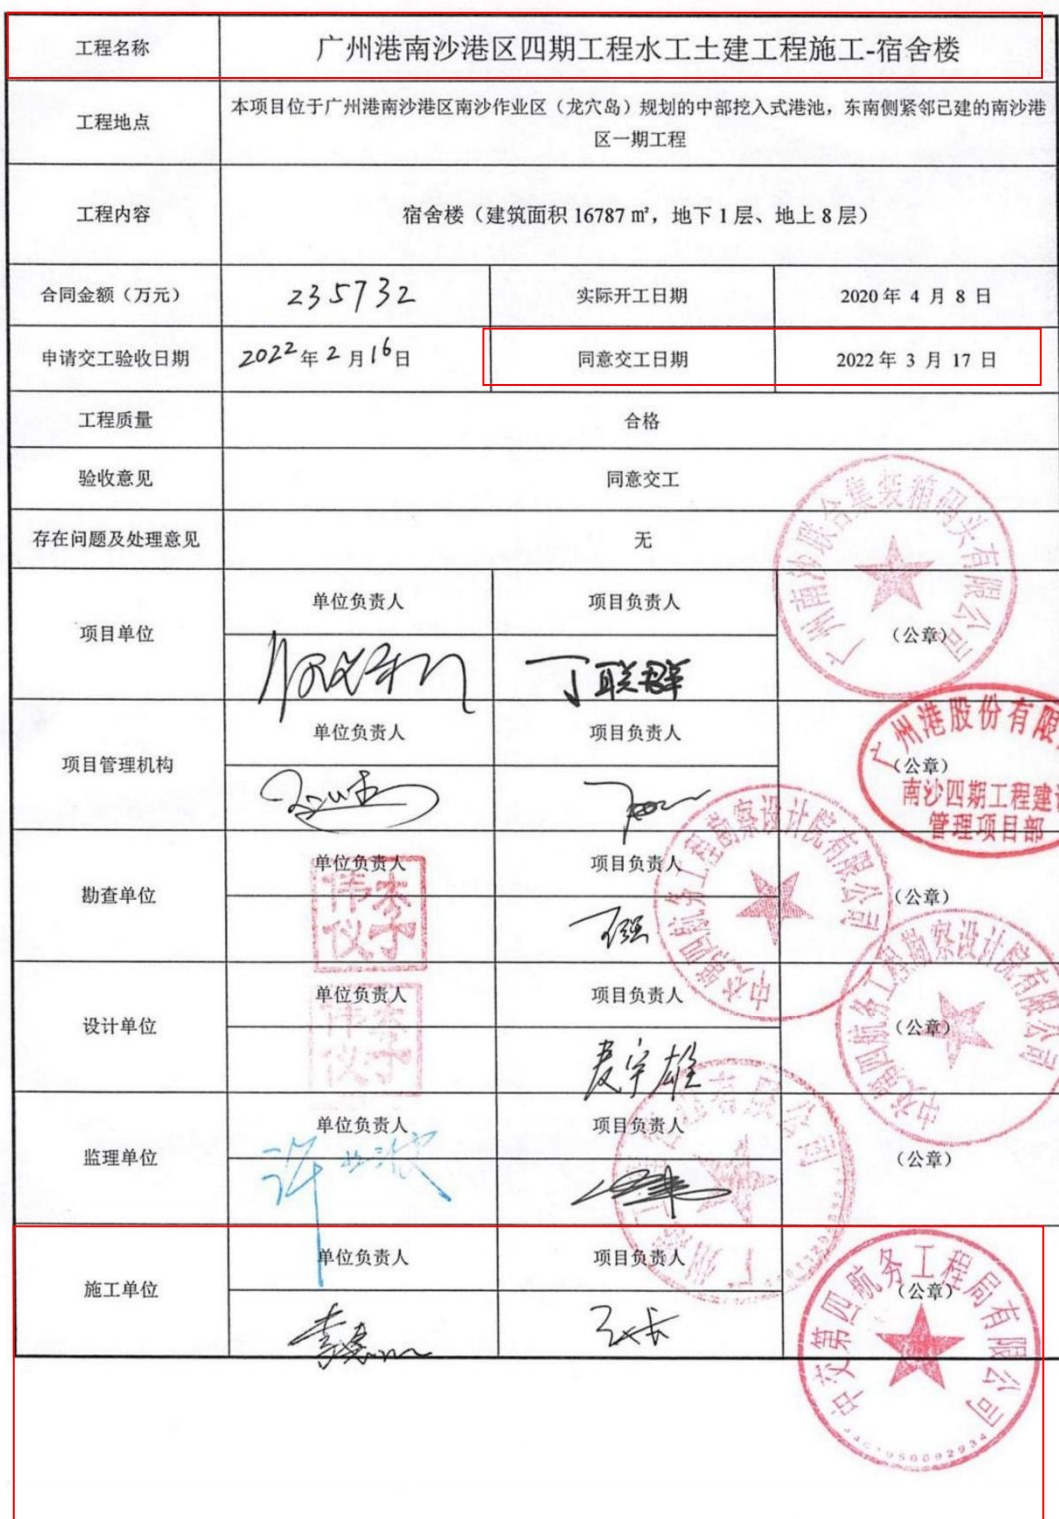 工程名称
广州港南沙港区四期工程水工土建工程施工-宿舍楼
工程地点
本项目位于广州港南沙港区南沙作业区（龙穴岛）规划的中部挖入式港池，东南侧紧邻已建的南沙港
区一期工程
工程内容
宿舍楼（建筑面积 16787 ㎡，地下 1 层、地上 8 层）
合同金额（万元）
235732
实际开工日期
2020 年 4 月 8 日
申请交工验收日期
2022 年 2 月 16 日
同意交工日期
2022 年 3 月 17 日
工程质量
合格
验收意见
同意交工
存在问题及处理意见
无
项目单位
单位负责人
项目负责人
丁联群
（公章）
广州南沙联合集装箱码头有限公司
项目管理机构
单位负责人
项目负责人
（公章）
广州港股份有限
南沙四期工程建设
管理项目部
勘查单位
单位负责人
李伟仪
项目负责人
（公章）
中交第四航务工程勘察设计院有限公司
设计单位
单位负责人
李伟仪
项目负责人
（公章）
中交第四航务工程勘察设计院有限公司
监理单位
单位负责人
项目负责人
（公章）
施工单位
单位负责人
项目负责人
（公章）
中交第四航务工程局有限公司